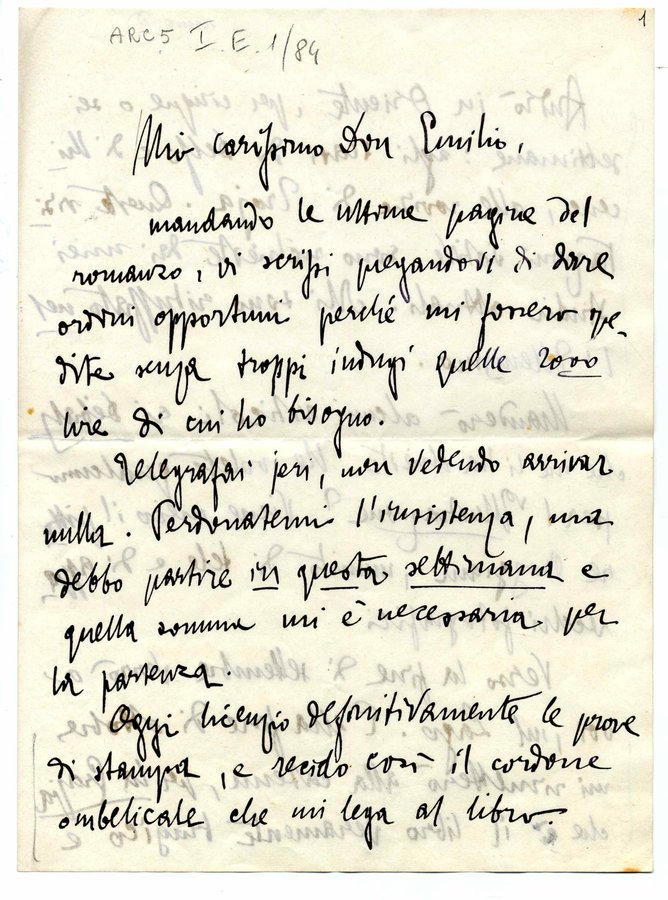 1
ARC5 I. E. 1/84
Mio carissimo Don Emilio,
mandando le ultime pagine del
romanzo, vi scrissi pregandovi di dare
ordini opportuni perché mi fossero spe-
dite senza troppi indugi quelle 2000
lire di cui ho bisogno.
Telegrafai jeri, non vedendo arrivar
nulla. Perdonatemi l'insistenza, ma
debbo partire in questa settimana e
quella somma mi è necessaria per
la partenza.
Oggi licenzio definitivamente le prove
di stampa, e recido così il cordone
ombelicale che mi lega al libro.